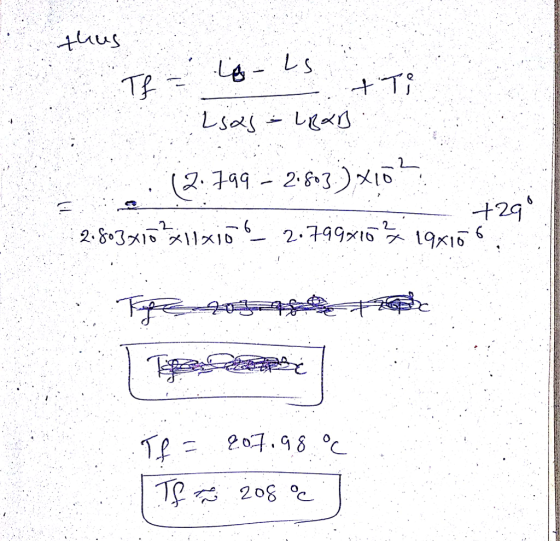 thus
Tf = LB - LS / LSαS - LBαB + Ti
= (2.799 - 2.803) × 10^-2 / 2.803×10^-2 × 11×10^-6 - 2.799×10^-2 × 19×10^-6 + 29°
Tf = 207.98 °C
Tf ≈ 208 °C